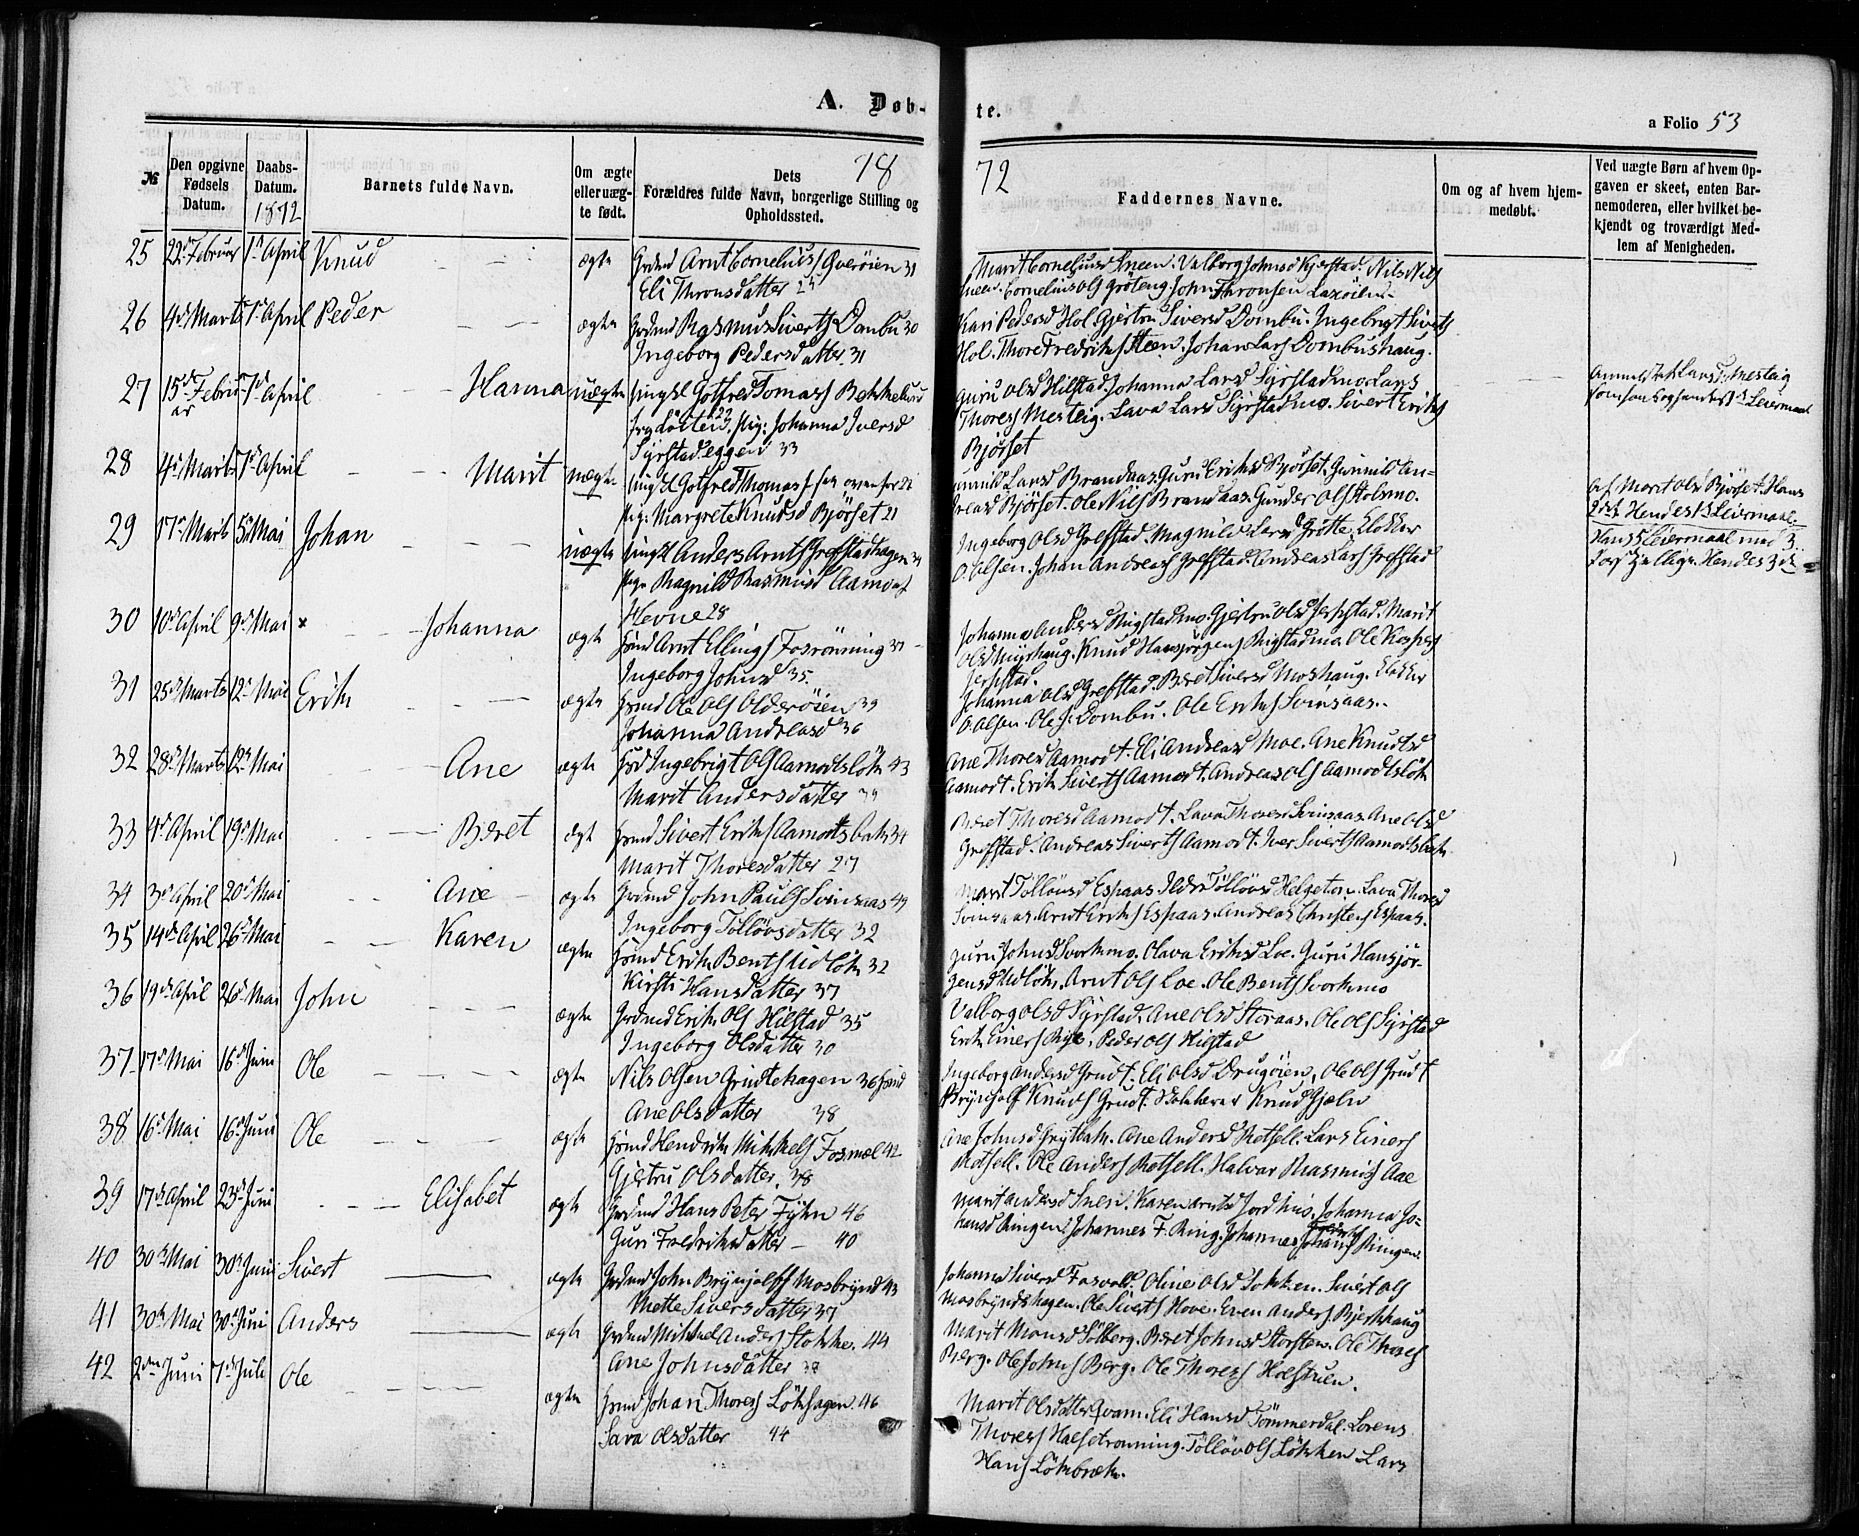 A. Døb-
te.
a Folio 53
18
72
№
Den opgivne Fødsels Datum.
Daabs-Datum. 1872
Barnets fulde Navn.
Om ægte eller uæg-te født.
Dets Forældres fulde Navn, borgerlige Stilling og Opholdssted.
Faddernes Navne.
Om og af hvem hjem-medøbt.
Ved uægte Børn af hvem Op-gaven er skeet, enten Bar-nemoderen, eller hvilket be-kjendt og troværdigt Med-lem af Menigheden.
25 22de Februar 1ste April Knud ægte Grdmd Arnt Cornelius Qverøien 31
Eli Thronsdatter 25
Marit Corneliusd Sneen. Valborg Johnsd Kjerstad. Nils Nils
Sneen. Cornelius Ols Gröteng. John Thronsen
26 4de Marts 1ste April Peder ægte Grdmd Rasmus Siverts Dombu 30
Ingeborg Pedersdatter 31
Kari Pedersd Hol. Gjertru Siversd Dombu. Ingebrigt Siverts
Hol. Thore Fredriks Steen. Johan Lars Dombushaug.
27 15de Februar 7de April Hanna uægte Ungk Gotfred Tomas
Pig: Johanna Iversd
Syrstadeggen 33
Guru Olsd Hilstad. Johanna Larsd Syrstadmo. Lars
Thores Mesteig. Lava Larsd Syrstadmo. Sivert Eriks
Bjørset
28 4de Marts 7de April Marit uægte Ungk Gotfred Thomas s. ovenfor 22
Pig: Margrete Knudsd Bjørset 21
Larsd Brandaas. Guru Eriksd Bjørset. Gunnild An-
dreasd Bjørset. Ole Nils Brandaas. Gunder Ols Holsmo.
Marit Olsd Bjørset. Hans
2det Hendes 1ste Leiermaal
29 17de Marts 5te Mai Johan uægte Ungk Anders Arnts Grefstadhagen
Pige Magnild Rasmusd Aamot
Hevne 28
Ingeborg Olsd Grefstad. Magnild Larsd Grötte. Klokker
O. Olsen. Johan Andreas Grefstad. Andreas Lars Grefstad
Hans 5te Leiermaal med 3
30 10de April 9de Mai Johanna ægte Grdmd Arnt Ellings Fosrönning 37
Ingeborg Johnsd 35.
Johanna Andersd Rigstadmo. Gjertru Olsd Jerpstad. Marit
Olsd Myrhaug. Knud Hansjørgens Rigstadmo. Ole
Jerpstad.
31 25de Marts 12te Mai Erik ægte Ole Ols Olderøien 39
Johanna Andreasd 36
Johanna Olsd Grefstad. Beret Siversd Moshaug. Klokker
O. Olsen. Ole J. Dombu. Ole Eriks Svinsaas.
32 28de Marts 12te Mai Ane ægte Ingebrigt Ols Aamodtsløk 43
Marit Andersdatter
Ane Thoresd Aamodt. Eli Andreasd Moe. Ane Knudsd
Aamodt. Erik Siverts Aamodt. Andreas Ols Aamodtsløk
33 4de April 19de Mai Beret ægte Sivert Eriks Aamodtsbak 34
Marit Thoresdatter 27
Beret Thoresd Aamodt. Lava Thoresd Svinsaas. Ane Olsd
Grefstad. Andreas Siverts Aamodt. Iver Siverts Aamodtsbak
34 3de April 20de Mai Ane ægte Grdmd John Pauls Svinsaas 49
Ingeborg Tølløvsdatter 32
Marit Tølløvsd Espaas. Ildri Tølløvsd Helgeton. Lava Thoresd
Svinsaas. Arnt Eriks Espaas. Andreas Christens Espaas.
35 14de April 26de Mai Karen ægte Erik Bents Midløk 32
Kirsti Hansdatter 37
Guru Johnsd Svorkmo. Olava Eriksd Loe. Guru Hansjør-
gensd Midløk. Arnt Ols Loe. Ole Bents Svorkmo
36 19de April 26de Mai John ægte Grdmd Erik Ols Hilstad 35
Ingeborg Olsdatter 30
Valborg Olsd Syrstad. Ane Olsd Storaas. Ole Ols Syrstad
Erik Einers Rise. Peder Ols Hilstad
37 17de Mai 16de Juni Ole ægte Nils Olsen Grudtehagen 36
Ane Olsdatter 38
Ingeborg Andersd Grudt. Eli Olsd Drugøien. Ole Ols Grudt
Brynjolf Knuds Grudt. Knud Gjeln
38 16de Mai 16de Juni Ole ægte Hendrik Mikkels Fosmæl 42
Gjertru Olsdatter. 38
Ane Johnsd Grytbak. Ane Andersd Retsell. Lars Einers
Retsell. Ole Anders Retsell. Halvar Rasmus Aae
39 17de April 23de Juni Elisabet ægte Grdmd Hans Peter Fyhn 46
Guri Fredriksdatter 40
Marit Andersd Sneen. Karen Arntsd Jordhus. Johanna Jo-
hansd Ringen. Johannes F. Ring. Johannes Ringen.
40 30de Mai 30de Juni Sivert ægte Grdmd John Brynjolfs Mosbrynd 43
Mette Siversdatter 37
Johanna Siversd Fosvold. Oline Olsd Løkken. Sivert Ols
Mosbryndshagen. Ole Siverts Hove. Even Anders Bjerkhaug
41 30de Mai 30de Juni Anders ægte Grdmd Mikkel Anders Stokke. 44
Ane Johnsdatter
Marit Monsd Sølberg. Beret Johnsd Storsteen. Ole Thores
Berg. Ole Johns Berg. Ole Thores Holstuen.
42 2den Juni 7de Juli Ole ægte Johan Thores Løkhagen. 46
Lava Olsdatter 44
Marit Olsdatter Qvam. Eli Hansd Tømmerdal. Lorens
Thores Halsetrønning. Tølløv Ols Løkken Lars
Hans Løkbræk.